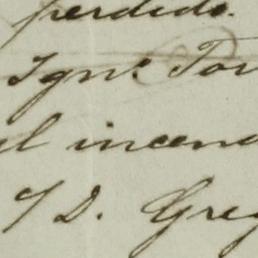 perdido.
Ignº Tor
el incen
y D. Greg